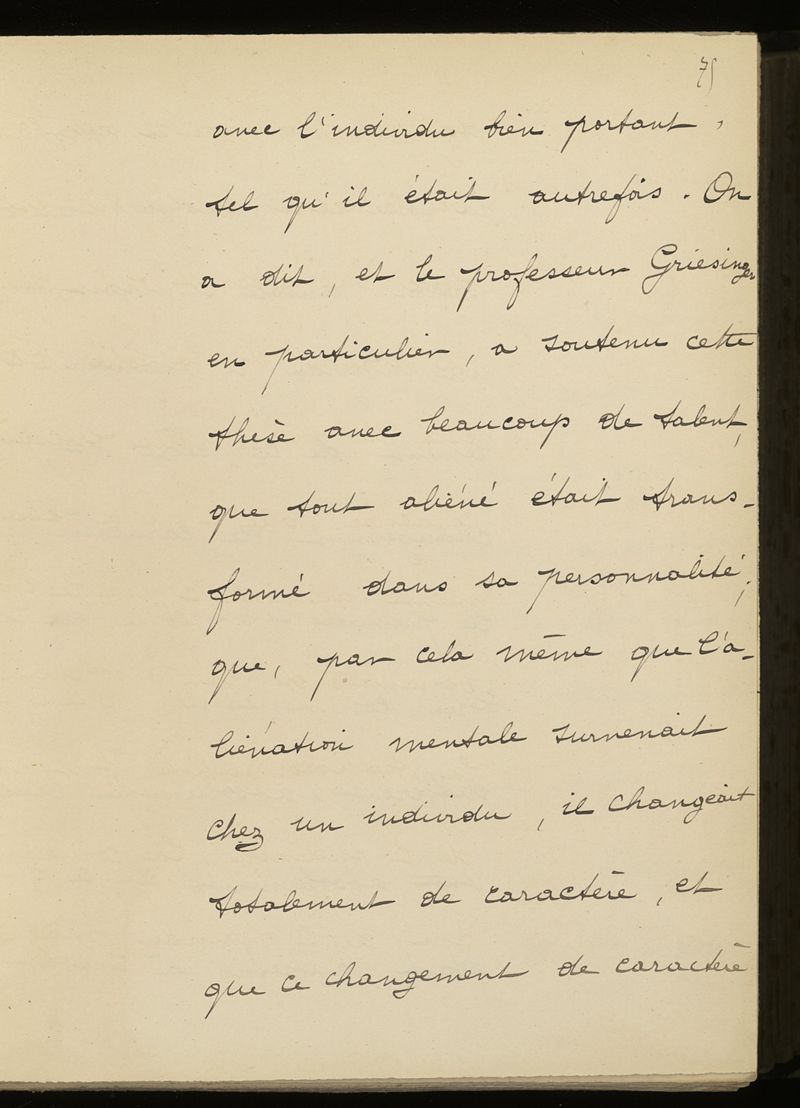 75
avec l'individu bien portant,
tel qu'il était autrefois. On
a dit, et le professeur Griesinger
en particulier, a soutenu cette
thèse avec beaucoup de talent,
que tout aliéné était trans-
formé dans sa personnalité;
que, par cela même que l'a-
liénation mentale survenait
chez un individu, il changeait
totalement de caractère, et
que ce changement de caractère